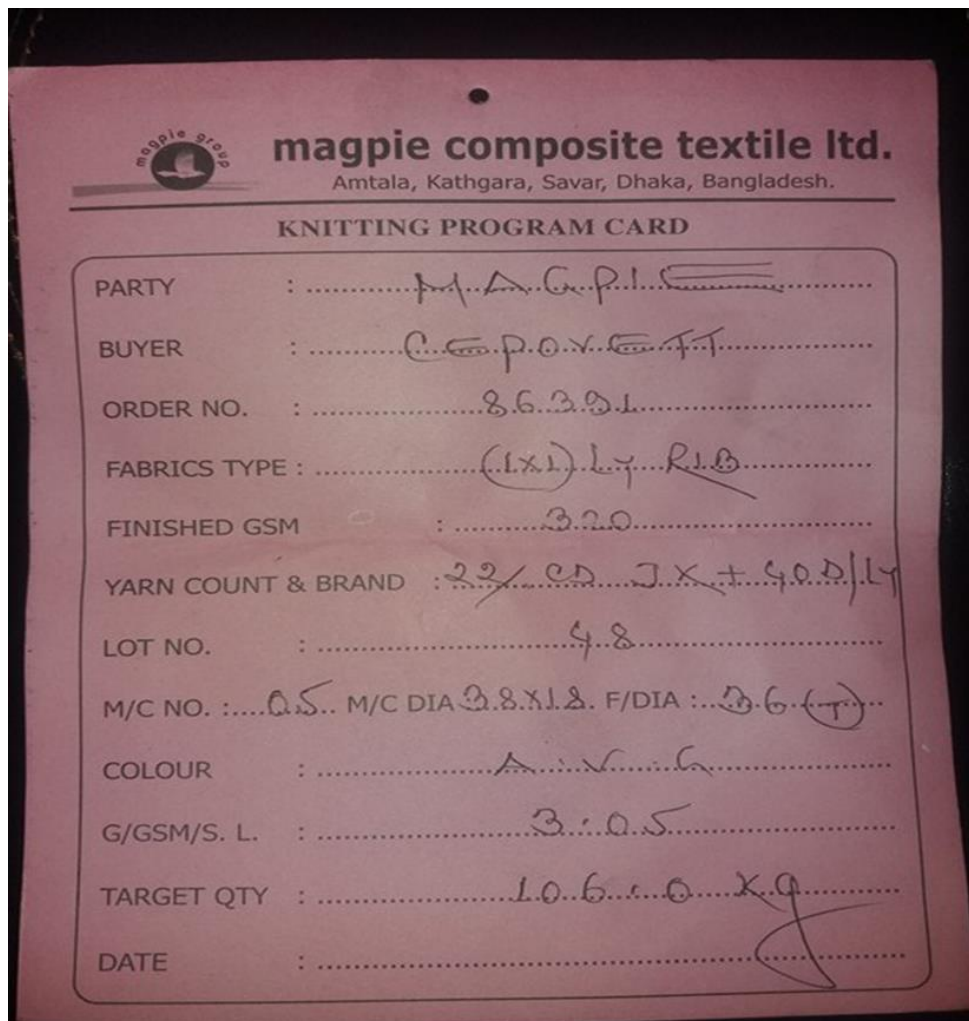 magpie group
magpie composite textile ltd.
Amtala, Kathgara, Savar, Dhaka, Bangladesh.
KNITTING PROGRAM CARD
PARTY : MAGPIE
BUYER : CEPOVETT
ORDER NO. : 86391
FABRICS TYPE : (1X1) Ly RIB
FINISHED GSM : 320
YARN COUNT & BRAND : 22/ CD JX + 40D/Ly
LOT NO. : 48
M/C NO. : 05 M/C DIA 38X18 F/DIA : 36 (T)
COLOUR : A.V.G
G/GSM/S. L. : 3.05
TARGET QTY : 106.0 Kg
DATE :